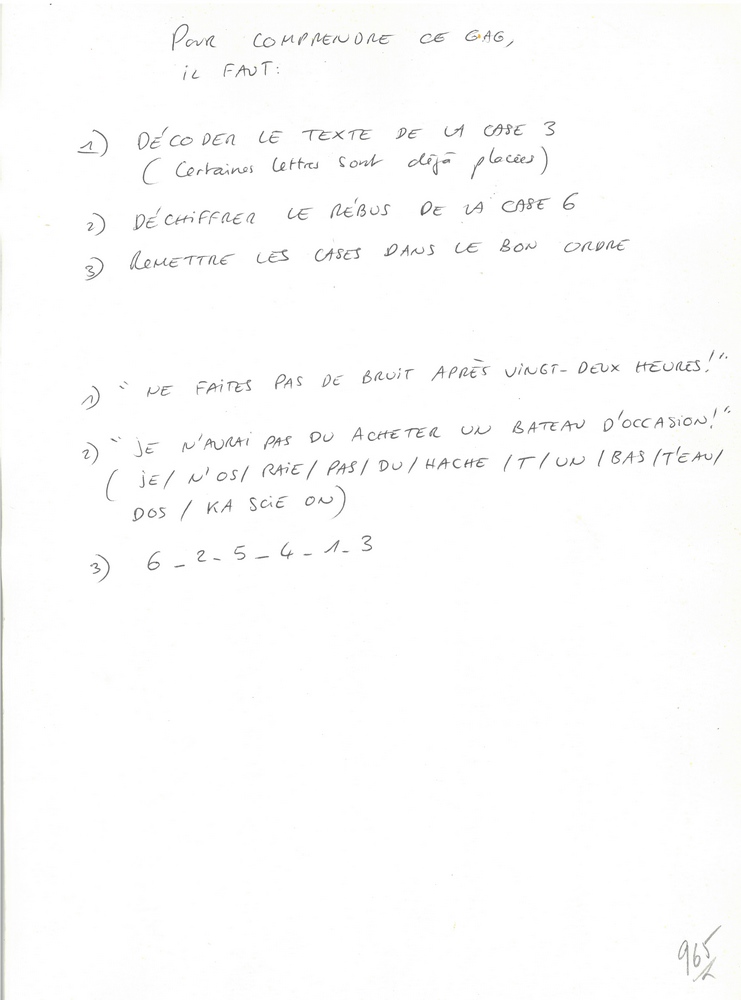 POUR COMPRENDRE CE GAG,
iL FAUT:
1) DÉCODER LE TEXTE DE LA CASE 3
(Certaines lettres sont déjà placées)
2) DÉCHIFFRER LE RÉBUS DE LA CASE 6
3) REMETTRE LES CASES DANS LE BON ORDRE
1) " NE FAITES PAS DE BRUIT APRÈS VINGT-DEUX HEURES!"
2) " JE N'AURAI PAS DU ACHETER UN BATEAU D'OCCASION!"
( JE/ N'OS/ RAIE/ PAS/ DU/ HACHE /T/ UN / BAS /T'EAU/
DOS / KA SCIE ON)
3) 6 - 2 - 5 - 4 - 1 - 3
965/2